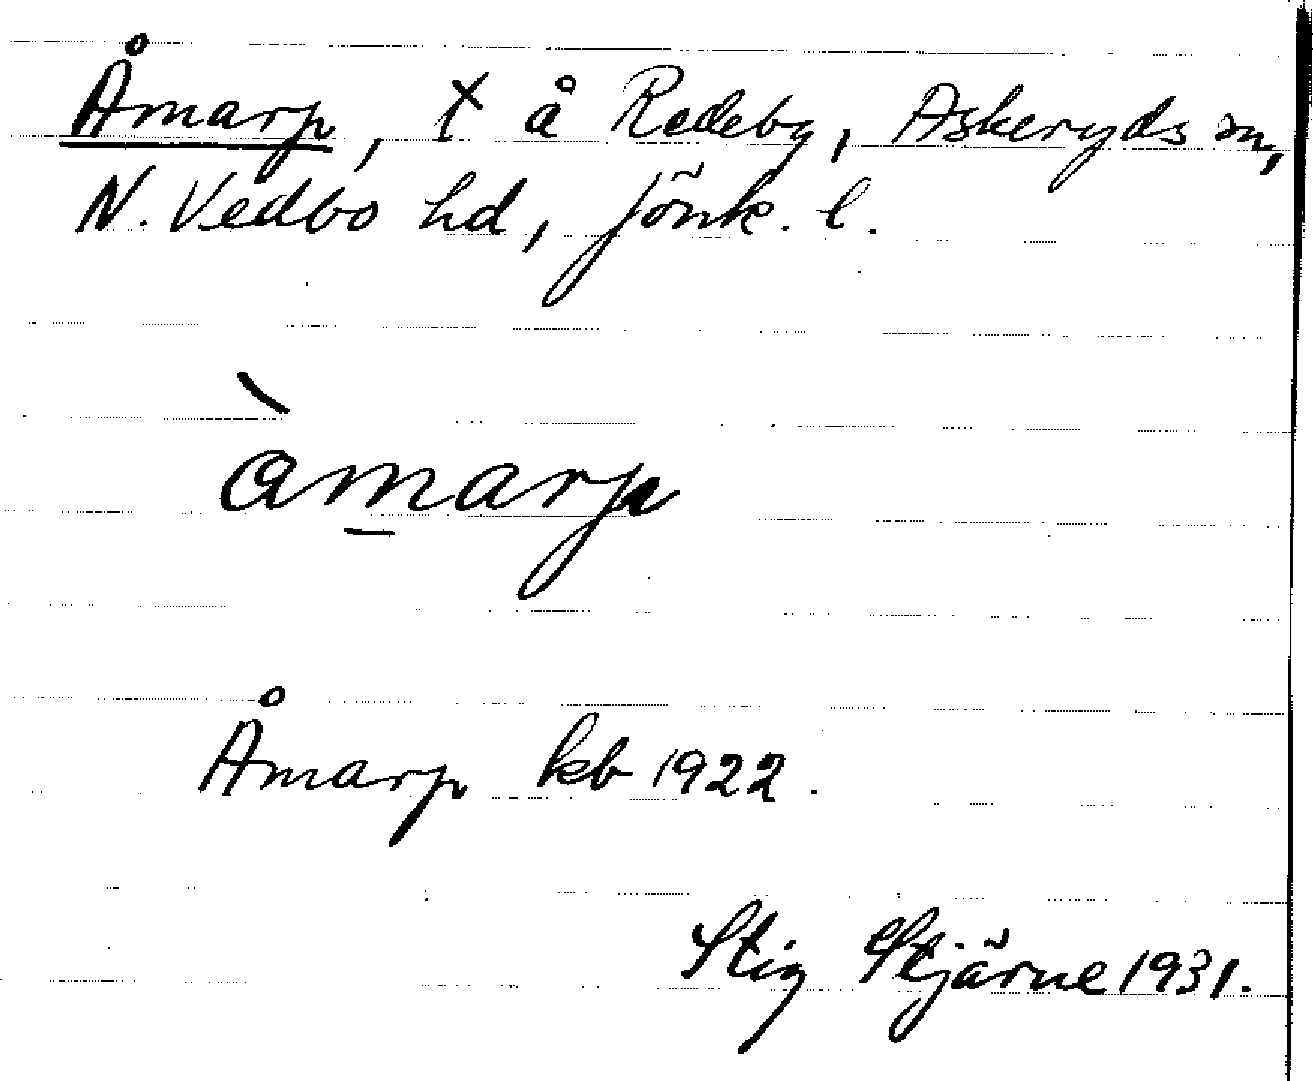 Åmarp, ϯ å Redeby, Askeryds sn,
N. Vedbo hd, Jönk. l.
àmarp
Åmarp kb 1922.
Stig Stjärne 1931.